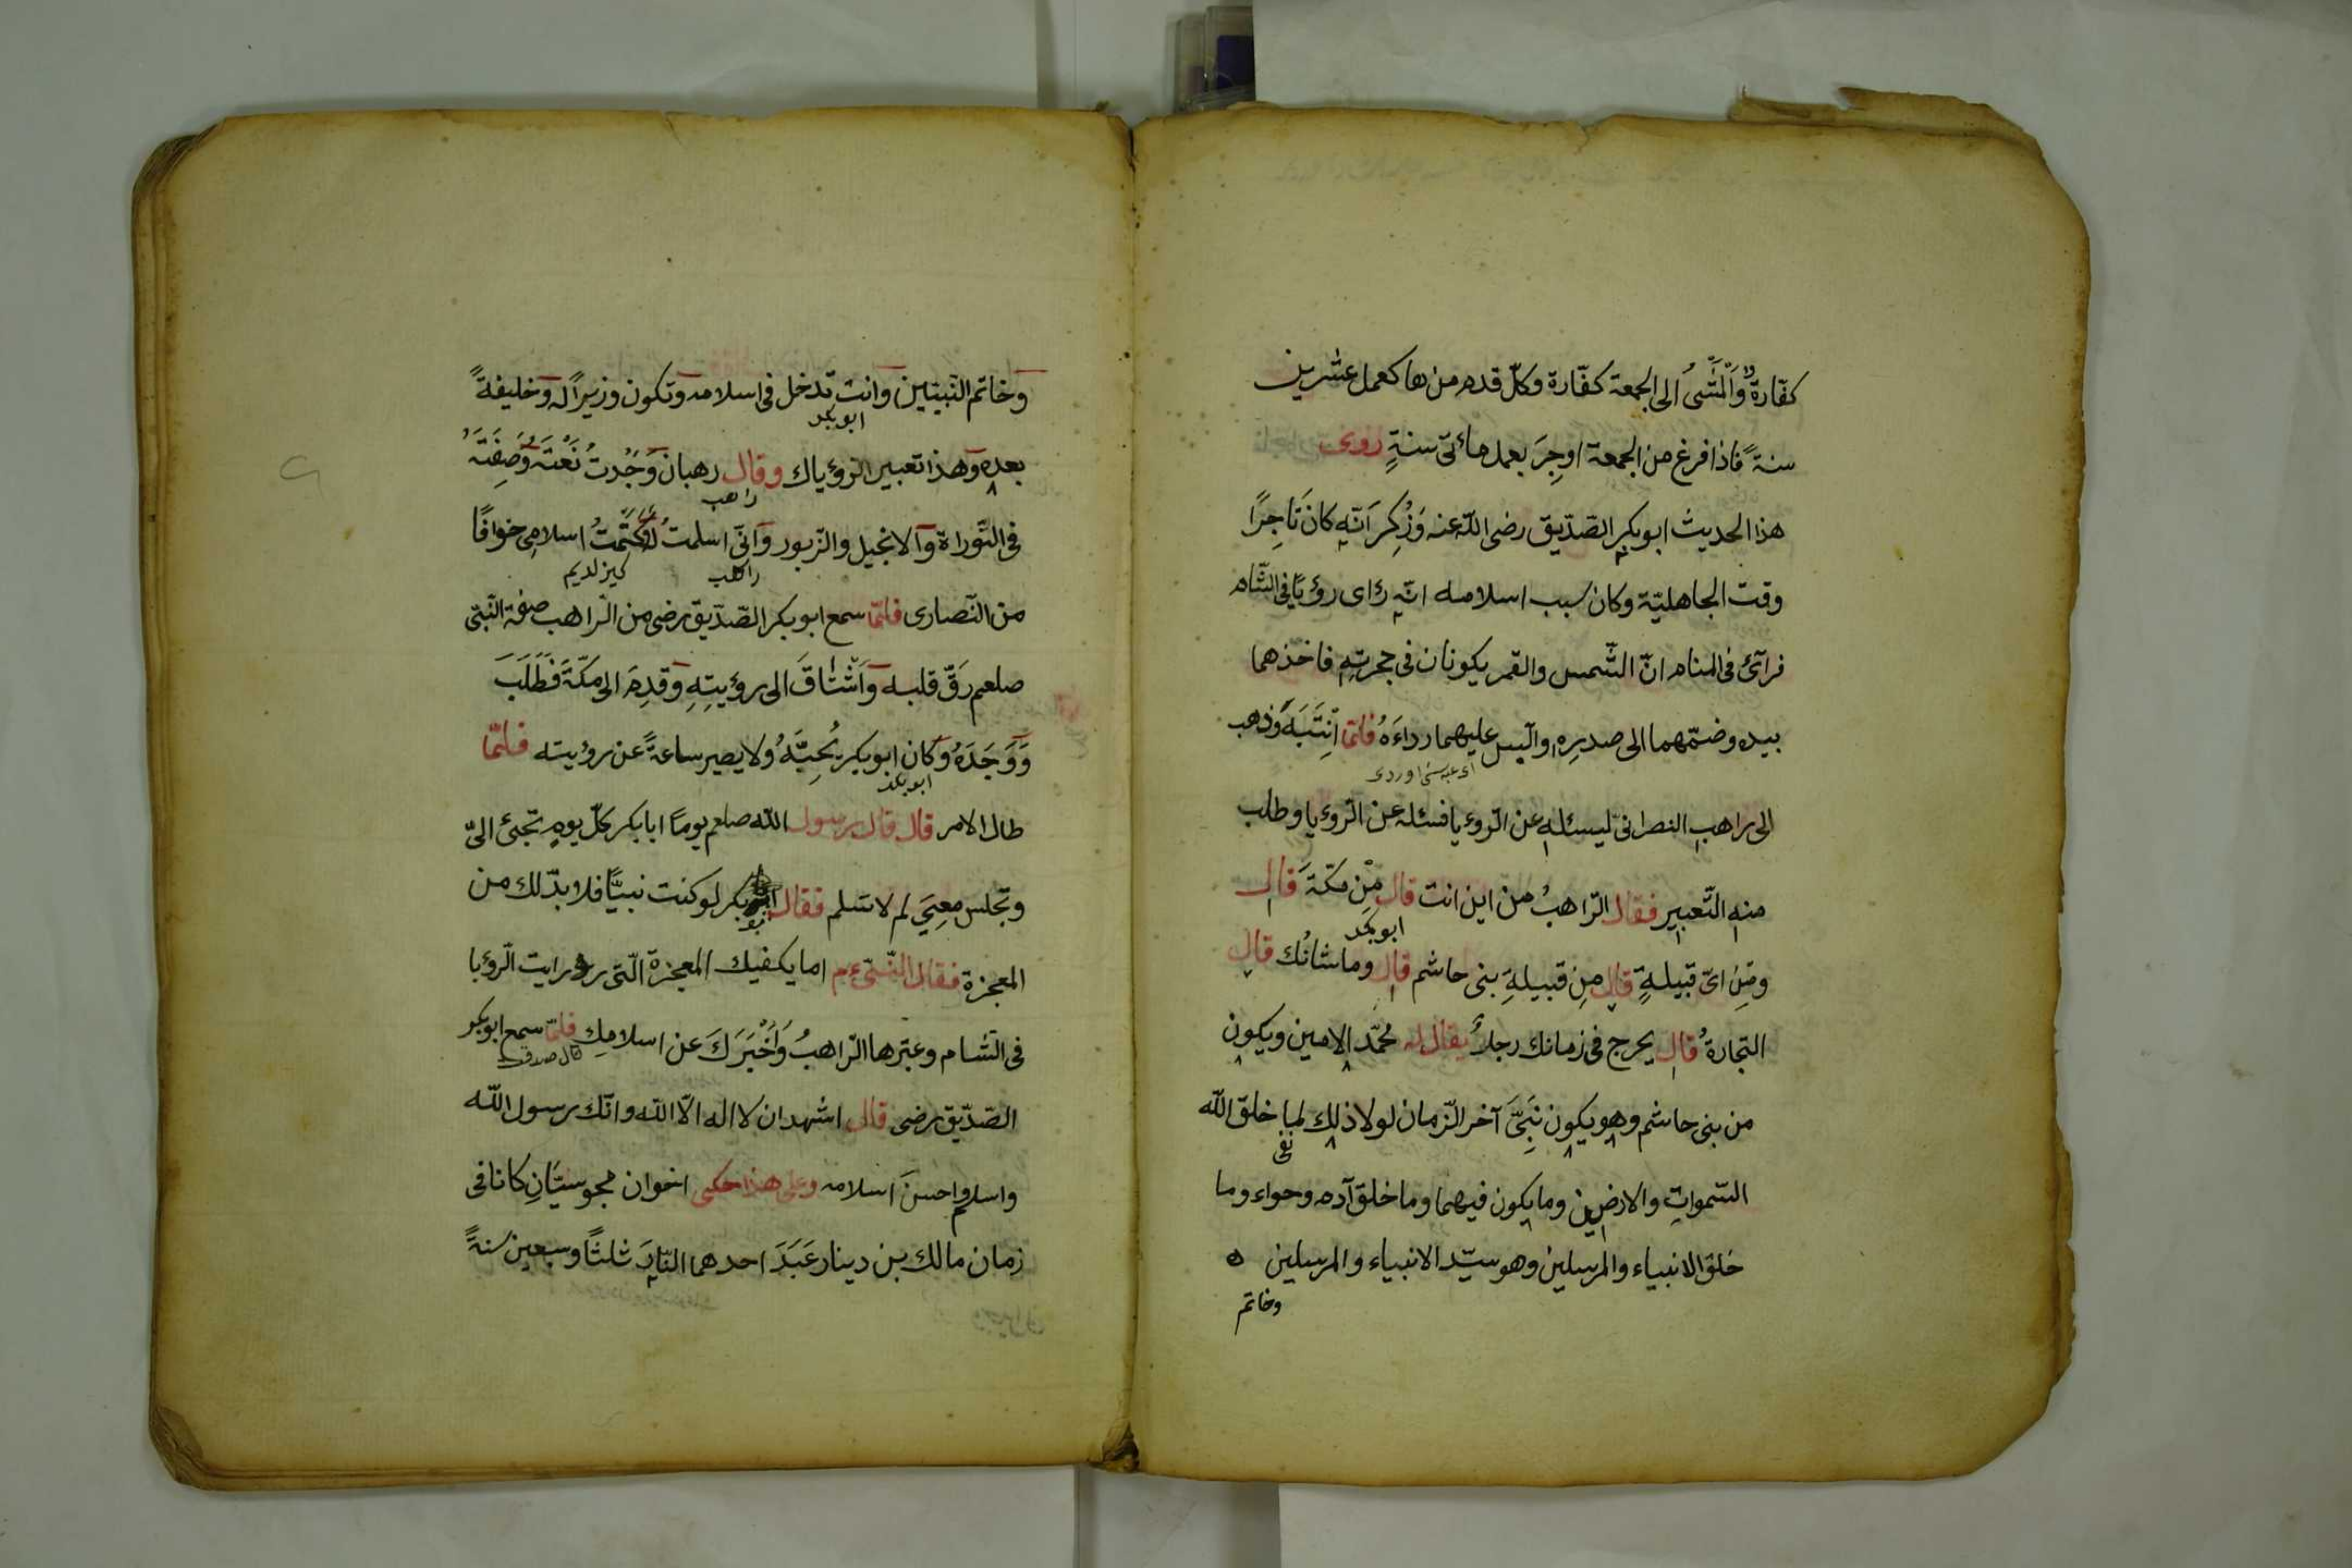 كفّارةٌ وَالْمَشْىُ الى الجمعة كفّارة وكلّ قدم من ها كعمل عشرين
سنةً فاذا فرغ من الجمعة اوجِرَ بعمل مائتى سنةٍ روى
هذا الحديث ابوبكر الصّدّيق رضى اللّه عنه وَذُكِرَ انّه كانَ تَاجِرًا
وقت الجاهليّة وكان سبب اسلامه انّه رٲى رؤيًا فى الشّام
فرأىٰ فى المنام انّ الشّمس والقمر يكونان فى حجرتِهِ فاخذهما
بيده وضمّهما الى صدرِهِ والبس عليهما رداءَهُ فلمّا انْتَبَهَ وَذهب
الى راهب النصرانىّ ليسئله عن الرّوءيا فسئله عن الرّوءيا وطلب
منه التّعبير فقال الرّاهبُ من اين انت قال مِنْ مكّةَ قال
ابوبكر
ومِنْ اىّ قبيلةٍ قال مِن قبيلةِ بنى هاشم قال وما شانُك قال
التجارةُ قال يخرج فى زمانك رجلٌ يقال له محمّد الامين ويكون
من بنى هاشم وهو يكون نَبِىَّ آخر الزّمان لولا ذلك لما خلق اللّه
نفى
السّمواتِ والارضين وما يكون فيهما وما خلق آدم وحواء وما
خلق الانبياء والمرسلين وهو سيّد الانبياء والمرسلين
وخاتم
وخاتم النّبيّين وانت تدخل فى اسلامه وتكون وزيرًا له وخليفةً
ابوبكر
بعده وهذا تعبير الرّؤياك وقال رهبان وَجَدتُ نَعْتَهُ وَصِفَتَهُ
راهب
فى التّوراة والانجيل والزّبور وانّى اسلمت له وكَتَّمتُ اسلامِى خوافًا
راهب كيزلديم
من النّصارى فلمّا سمع ابوبكر الصّدّيق رضى من الرّاهب صفة النّبىّ
صلعم رَقّ قلبه وَاشْتَاقَ الى رؤيتِهِ وَقدِمَ الى مكّةَ فَطَلَبَ
وَوَجَدَهُ وَكان ابوبكر يُحِبُّهُ ولا يصير ساعةً عن رؤيته فلمّا
ابوبكر
طال الامر قال قال رسول اللّه صلعم يومًا ابا بكر كلّ يومٍ تجئ الىّ
وتجلس مَعِىَ لم لا تسلم فقال ابوبكر لو كنت نبيًّا فلا بدّ لك من
المعجزة فقال النّبىّ عم اما يكفيك المعجزة الّتى رايت الرّؤيا
فى الشام وعبّرها الرّاهبُ وَاَخْبَرَكَ عن اسلامِك فلمّا سمع ابوبكر
قال صدقت
الصّدّيق رضى قال اشهد ان لا اله الّا اللّه وانّك رسول اللّه
واسلم واحسنَ اسلامه وعلى هذا حكى اخوان مجوسيّانِ كانا فى
زمان مالك بن دينار عَبَدَ احدهما النّارَ ثلثًا وسبعين سنةً